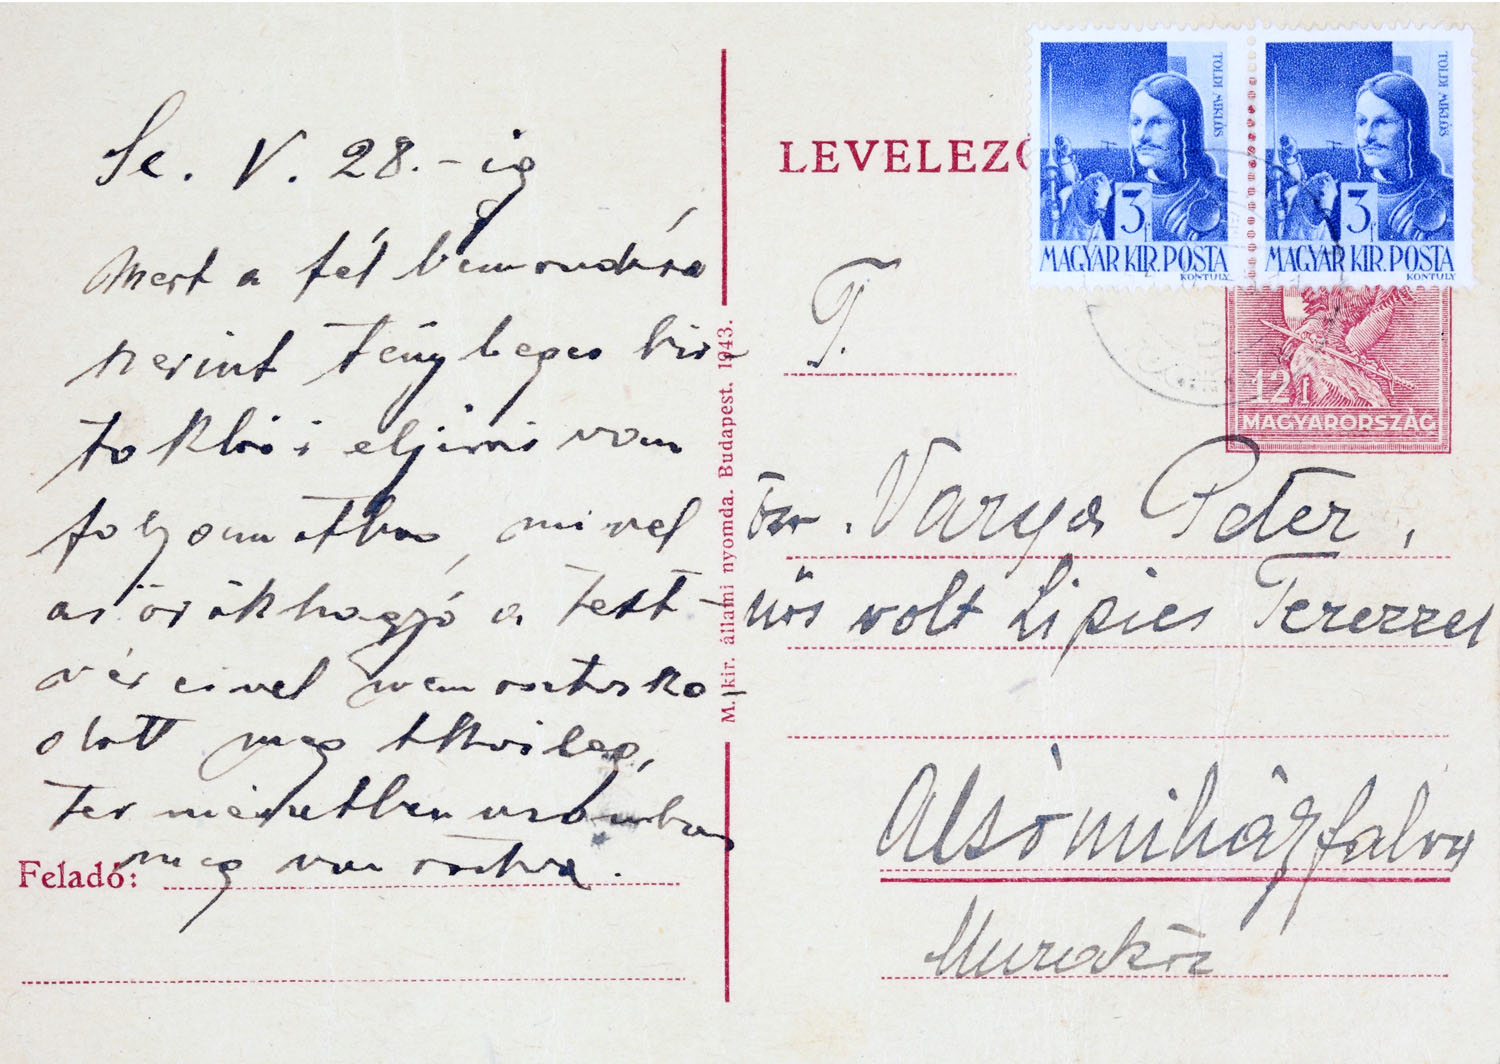 Sc. V. 28.-ig
Mert a fél bemondása
szerint tényleges bir-
toklási eljárás van
folyamatban, mivel
az örökhagyó a test-
véreivel nem osztozko-
dott meg tkvileg,
természetben azonban
meg van osztva.
Feladó:
M. kir. állami nyomda. Budapest. 1943.
LEVELEZŐ
TOLDI MIKLÓS
3f
MAGYAR KIR. POSTA
KONTULY
TOLDI MIKLÓS
3f
MAGYAR KIR. POSTA
KONTULY
12 f
MAGYARORSZÁG
T.
özv. Varga Peter,
nős volt Lipics Terezzel
Alsómihályfalva
Muraköz